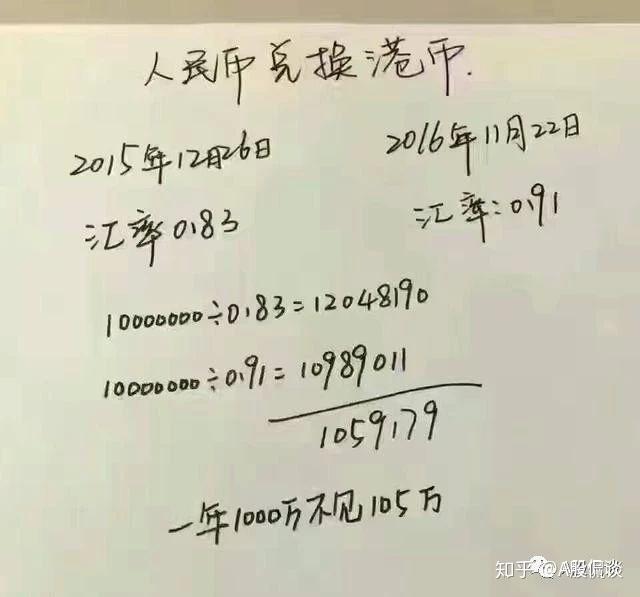 人民币兑换港币.
2015年12月26日
汇率0.83
2016年11月22日
汇率:0.91
10000000÷0.83=12048190
10000000÷0.91=10989011
1059179
一年1000万不见105万
知乎 @A股侃谈